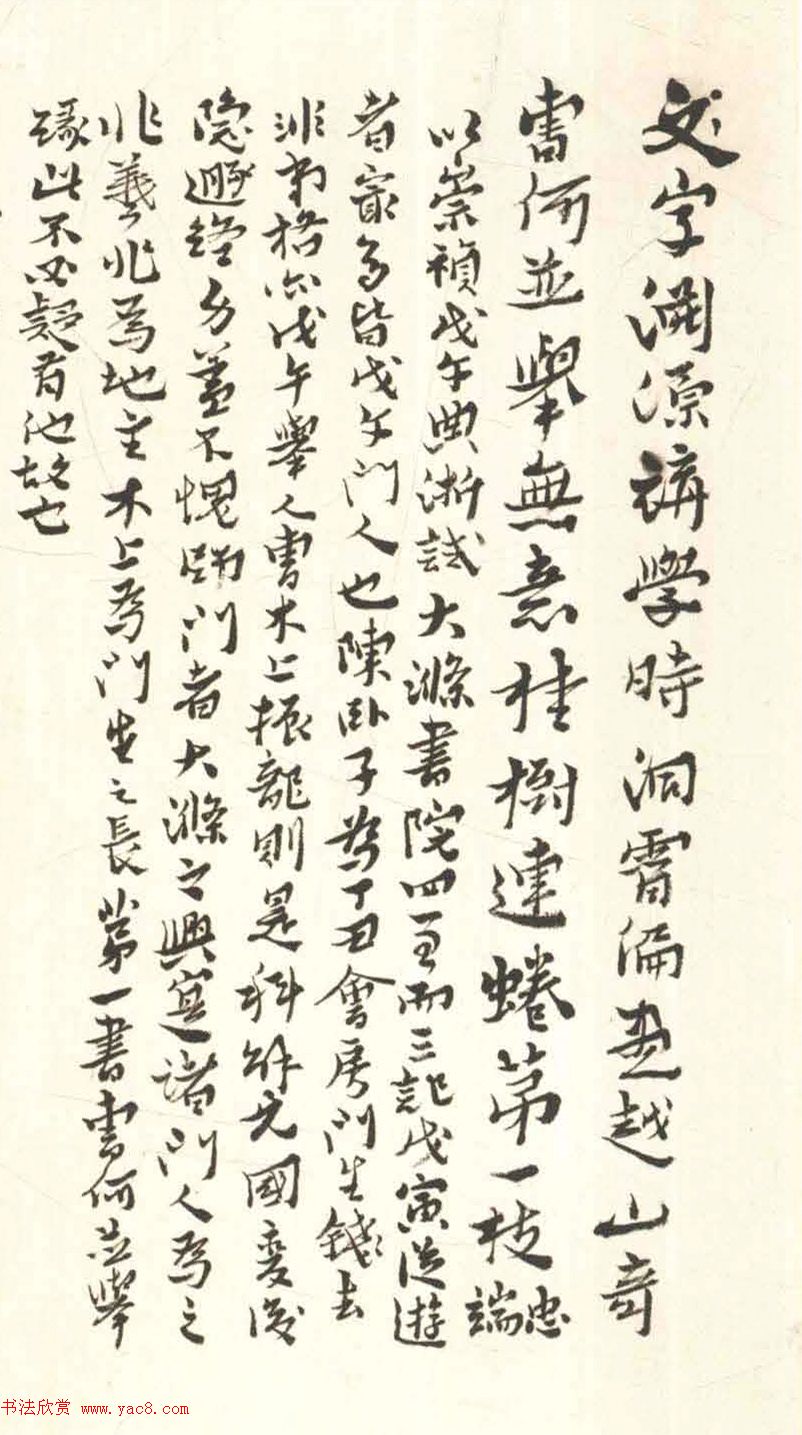 文字淵源講學時洞霄偏盡越山奇
曹何並舉無意桂樹連蜷第一枝忠端
以崇禎戊午典浙試大滌書院四至而三記戊寅從遊
者最多皆戊午門人也陳臥子為丁丑會房門生錢去
非者格亦戊午舉人曹木上振龍則是科解元國變後
隱遯終身蓋不愧師門者大滌之興寔諸門人為之
非羲兆為地主木上為門生之長第一書曹何並舉
緣此不必疑有他故也
书法欣赏 www.yac8.com